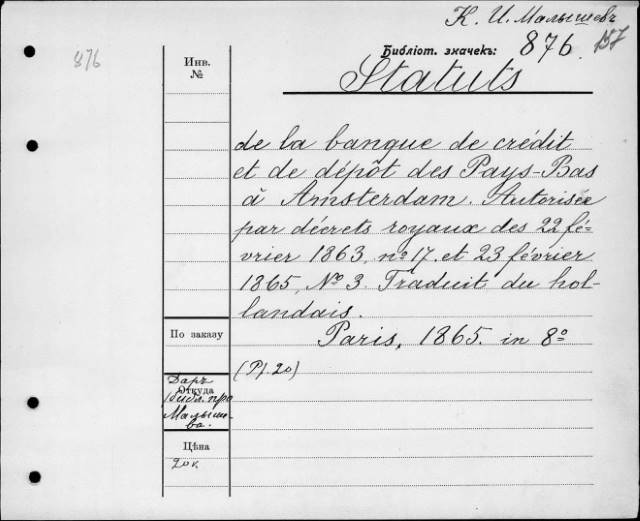 К. И. Малышевъ
876
Библіот. значекъ: 876 157
Инв.
№
Statuts
de la banque de crédit
et de dépôt des Pays-Bas
à Amsterdam. Autorisée
par décrets royaux des 22 fé-
vrier 1863, nº 17, et 23 février
1865, Nº 3. Traduit du hol-
landais.
По заказу
Paris, 1865. in 8º
(Pf. 20)
Даръ
Откуда
библ. про
Малыше-
ва.
Цѣна
20 к